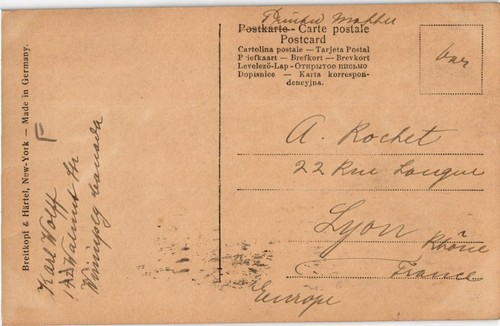 Breitkopf & Härtel, New-York — Made in Germany.
Karl Wolff
Walnut Str
Winnipeg Canada
Postkarte - Carte postale
Postcard
Cartolina postale — Tarjeta Postal
Briefkaart — Brefkort — Brevkort
Levelező-Lap - Открытое письмо
Dopisnice — Karta korrespon-
dencyjna.
A. Rochet
22 Rue Longue
Lyon
Rhône
France
Europe